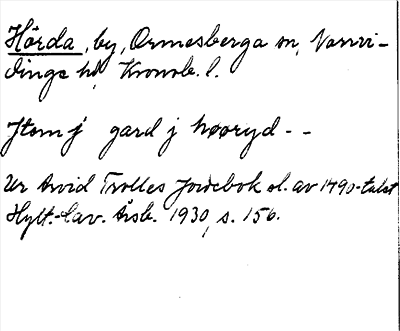 Hörda, by, Ormesberga sn, Norrvi-
dinge hd, Kronob. l.
Jtem j gard j hooryd - -
Ur Arvid Trolles Jordebok sl. av 1490-talet
Hylt.-Cav. Årsb. 1930, s. 156.